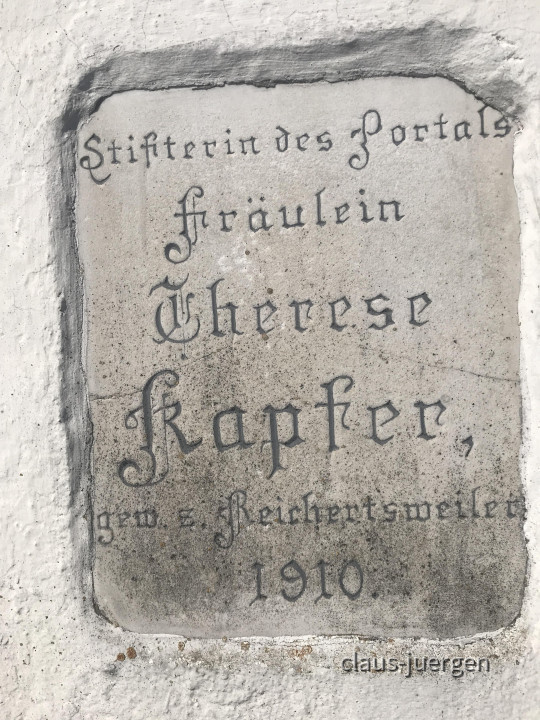 Stifterin des Portals
Fräulein
Therese
Kapfer,
gew. z. Reichertsweiler
1910.
claus-juergen